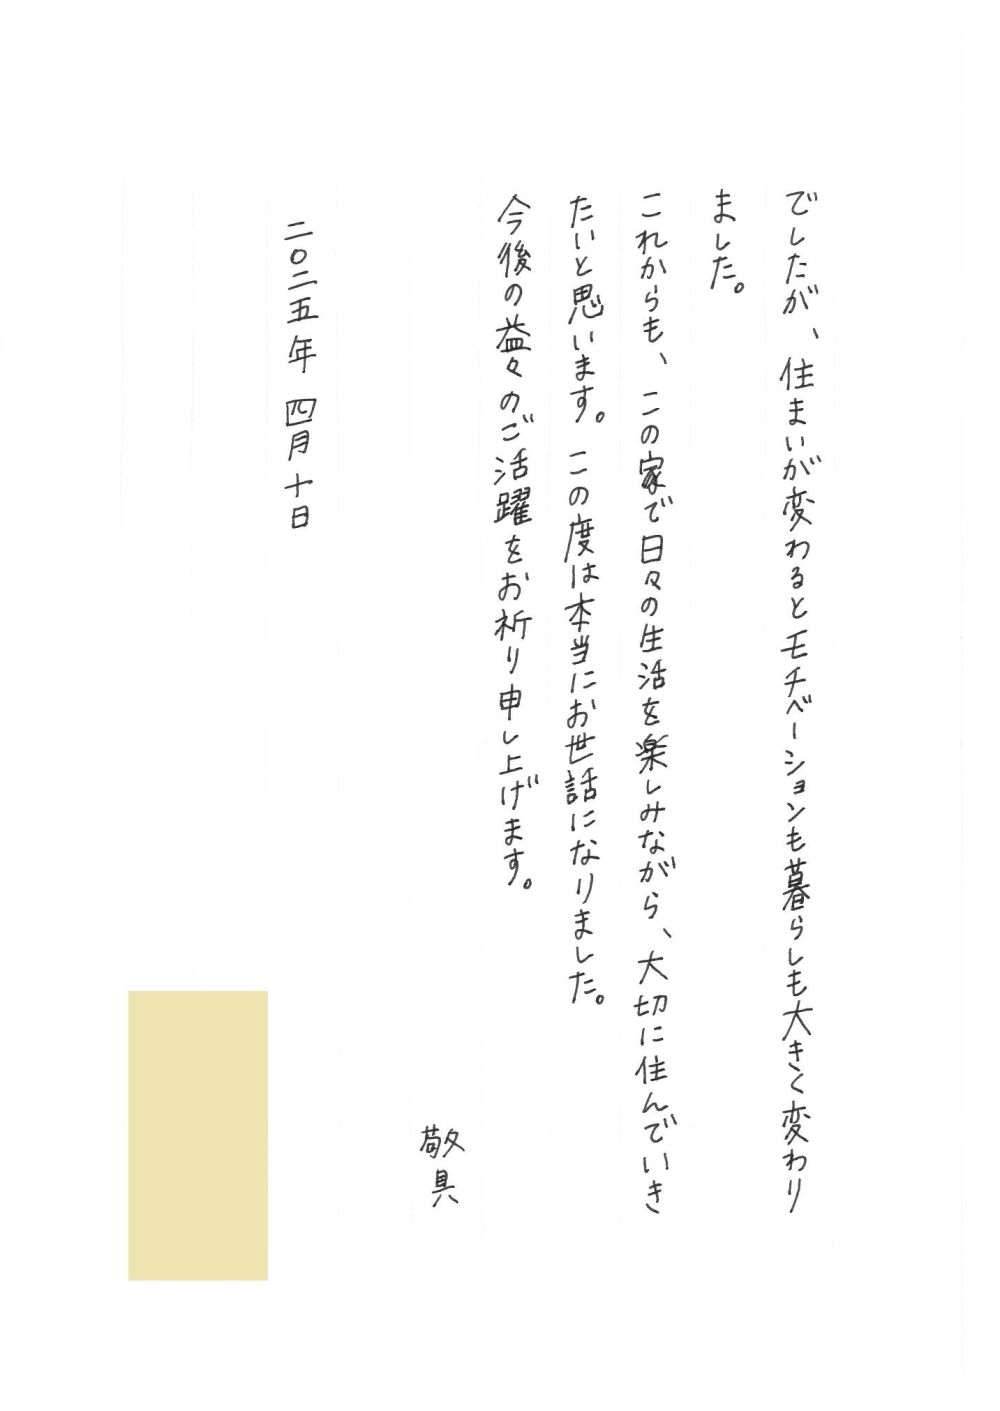 でしたが、住まいが変わるとモチベーションも暮らしも大きく変わり
ました。
これからも、この家で日々の生活を楽しみながら、大切に住んでいき
たいと思います。この度は本当にお世話になりました。
今後の益々のご活躍をお祈り申し上げます。
敬具
二〇二五年 四月十日